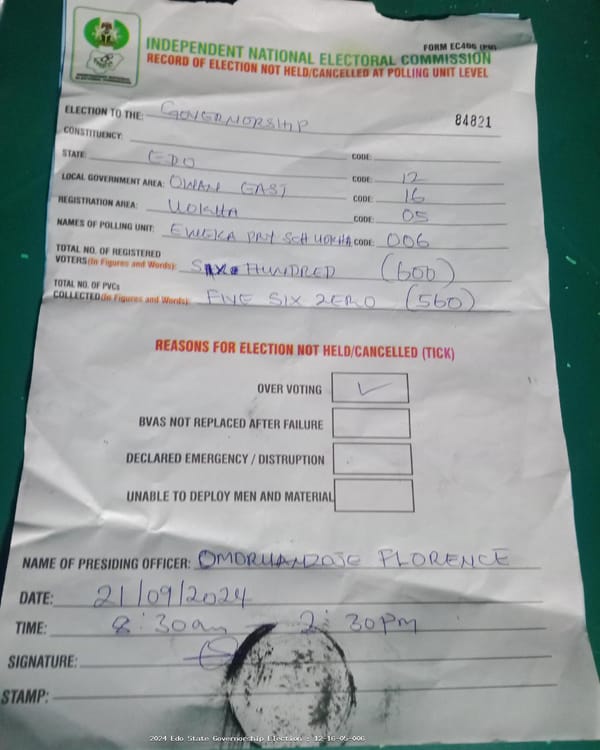 FORM EC40G (PU)
INDEPENDENT NATIONAL ELECTORAL COMMISSION
RECORD OF ELECTION NOT HELD/CANCELLED AT POLLING UNIT LEVEL
ELECTION TO THE: GOVERNORSHIP 84821
CONSTITUENCY:
STATE: EDO CODE: 12
LOCAL GOVERNMENT AREA: OWAN EAST CODE: 16
REGISTRATION AREA: UOKHA CODE: 05
NAMES OF POLLING UNIT: EWEKA PRY SCH UOKHA CODE: 006
TOTAL NO. OF REGISTERED
VOTERS (In Figures and Words): SIX HUNDRED (600)
TOTAL NO. OF PVCs
COLLECTED (In Figures and Words): FIVE SIX ZERO (560)
REASONS FOR ELECTION NOT HELD/CANCELLED (TICK)
OVER VOTING ✓
BVAS NOT REPLACED AFTER FAILURE
DECLARED EMERGENCY / DISTRUPTION
UNABLE TO DEPLOY MEN AND MATERIAL
NAME OF PRESIDING OFFICER: FLORENCE
DATE: 21/09/2024
TIME: 8:30am — 2:30pm
SIGNATURE:
STAMP:
2024 Edo State Governorship Election : 12-16-05-006